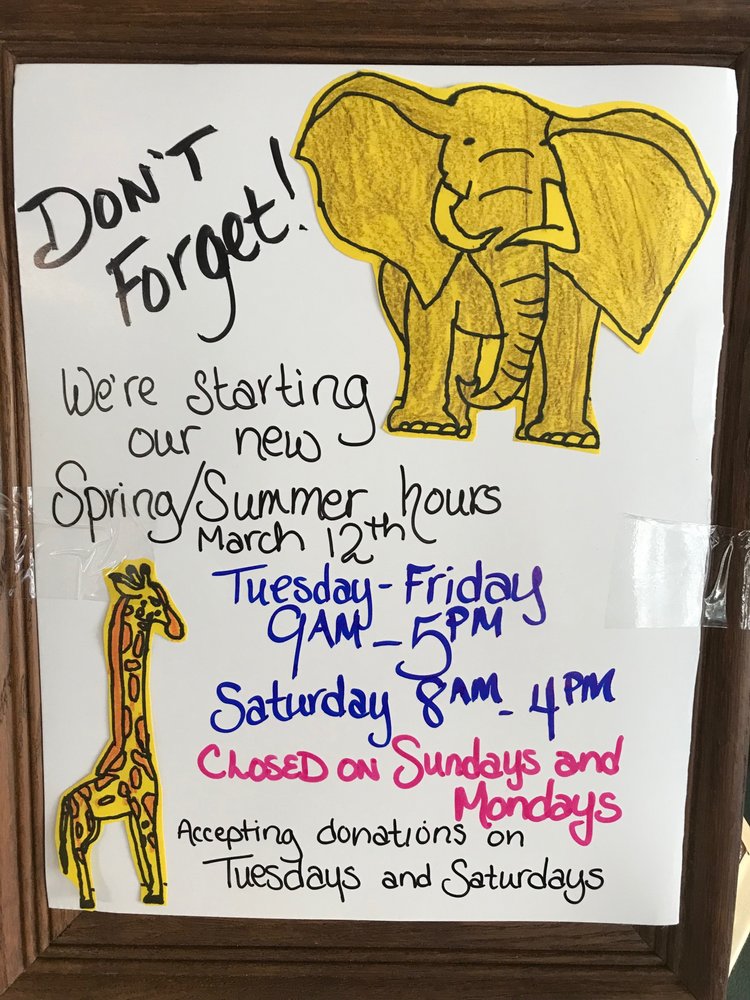 DON'T
Forget!
We're starting
our new
Spring/Summer hours
March 12th
Tuesday-Friday
9AM-5PM
Saturday 8AM-4PM
CLOSED ON Sundays and
Mondays
Accepting donations on
Tuesdays and Saturdays